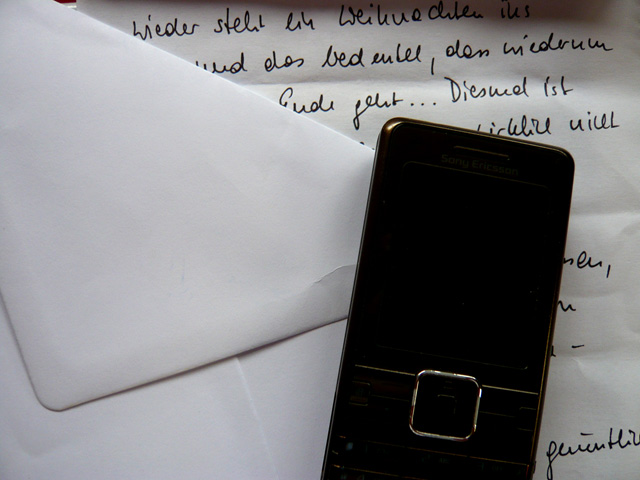 wieder steht ein Weihnachten ins
und das bedeutet, dass wiederum
Ende geht... Diesmal ist
wirklich nicht
Sony Ericsson